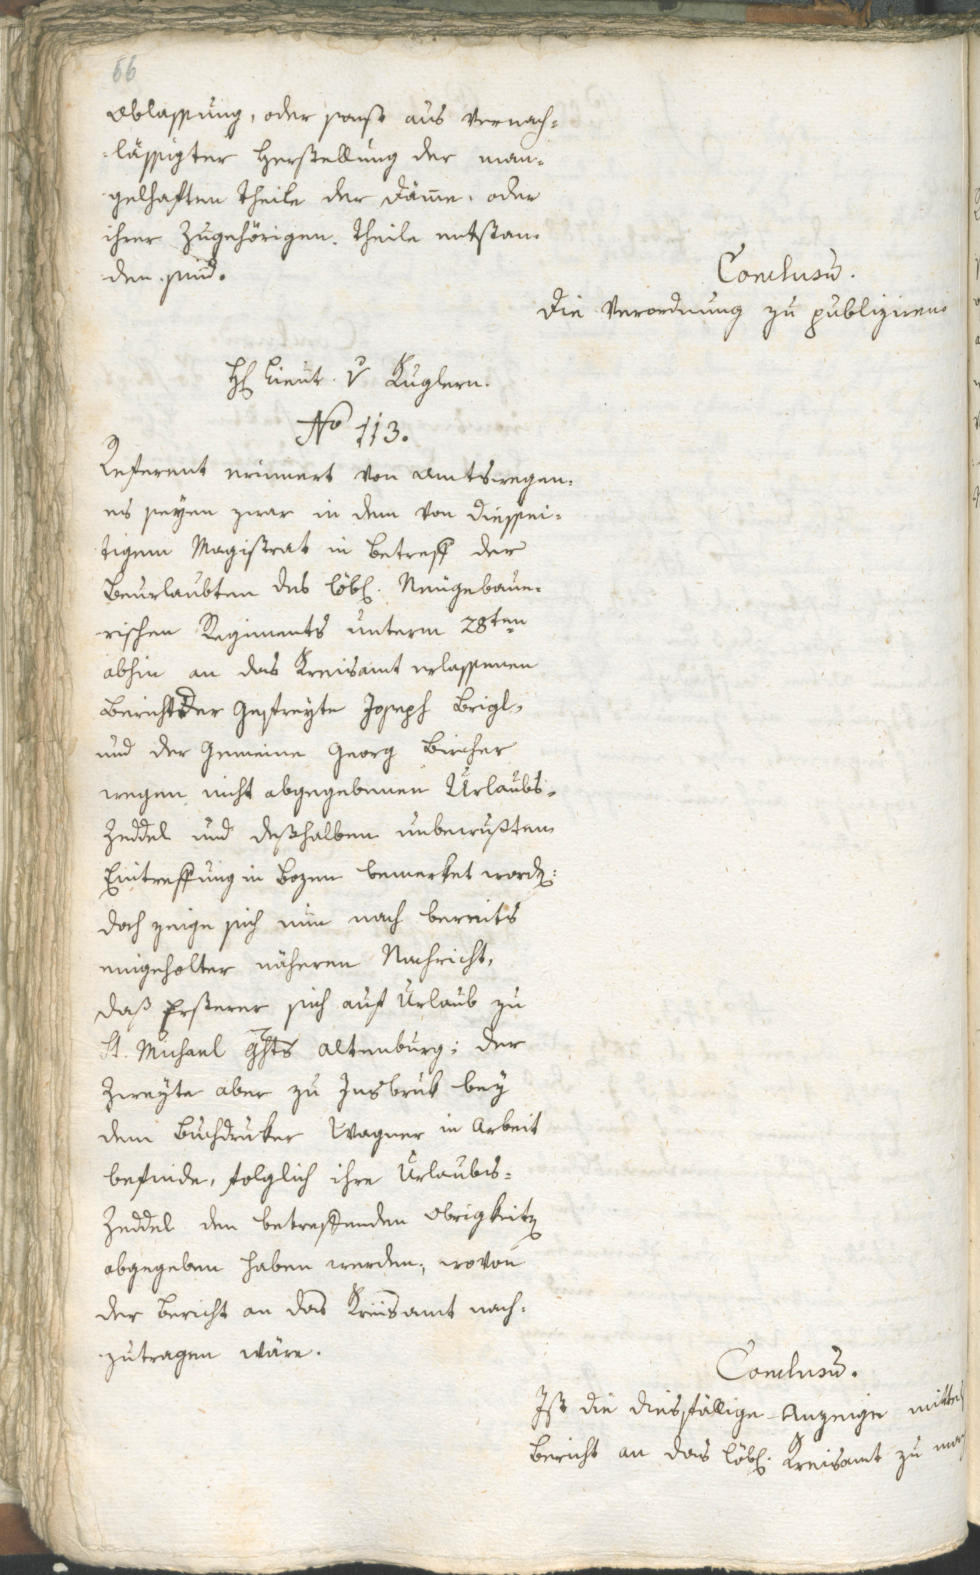 66
Ablassung, oder sonst aus vernach-
lässigter Herstellung der man-
gelhaften Theile der Däme, oder
ihrer Zugehörigen Theile entstan-
den sind.
Conclusū.
Die Verordnung zu publiziren
H Lieut. v Kuglern.
No 113.
Referent erinnert von Amtswegen,
es seyen zwar in dem von diessei-
tigem Magistrat in Betreff der
Beurlaubten des löbl. Neugebaue-
rischen Regiments unterm 28ten
abhin an das Kreisamt erlassenen
Bericht der Gefreyte Joseph Brigl,
und der Gemeine Georg Bircher
wegen nicht abgegebenen Urlaubs-
Zeddel und deßhalben unbewußten
Eintreffung in Bozen bemerket word:
doch zeige sich nun nach bereits
eingeholter näheren Nachricht,
daß Ersterer sich auf Urlaub zu
St. Michael Ghts Altenburg; der
Zweyte aber zu Insbruk bey
dem Buchdruker Wagner in Arbeit
befinde, folglich ihre Urlaubs-
Zeddel den betreffenden Obrigkeit
abgegeben haben werden, wovon
der Bericht an das Kreisamt nach-
zutragen wäre.
Conclusū.
Ist die diesfällige Anzeige mittel
Bericht an das löbl. Kreisamt zu